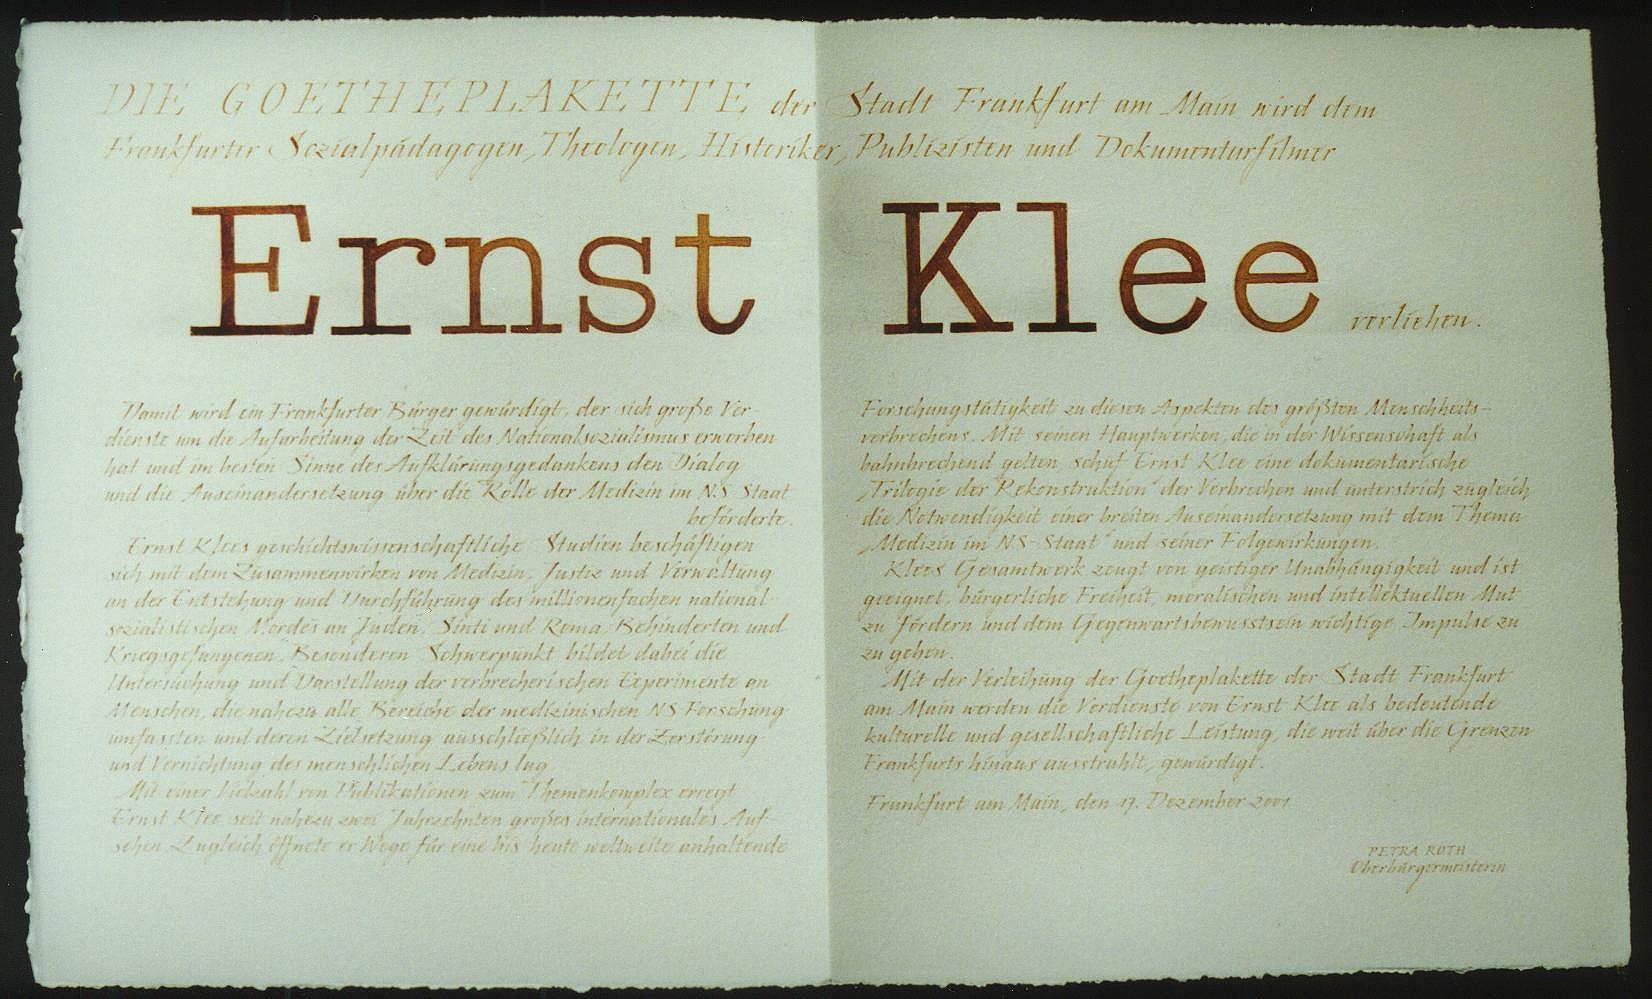 DIE GOETHEPLAKETTE der Stadt Frankfurt am Main wird dem
Frankfurter Sozialpädagogen, Theologen, Historiker, Publizisten und Dokumentarfilmer
Ernst Klee verliehen.
Damit wird ein Frankfurter Bürger gewürdigt, der sich große Ver-
dienste um die Aufarbeitung der Zeit des Nationalsozialismus erworben
hat und im besten Sinne des Aufklärungsgedankens den Dialog
und die Auseinandersetzung über die Rolle der Medizin im NS-Staat
beförderte.
Ernst Klees geschichtswissenschaftliche Studien beschäftigen
sich mit dem Zusammenwirken von Medizin, Justiz und Verwaltung
an der Entstehung und Durchführung des millionenfachen national-
sozialistischen Mordes an Juden, Sinti und Roma, Behinderten und
Kriegsgefangenen. Besonderen Schwerpunkt bildet dabei die
Untersuchung und Darstellung der verbrecherischen Experimente an
Menschen, die nahezu alle Bereiche der medizinischen NS-Forschung
umfassten und deren Zielsetzung ausschließlich in der Zerstörung
und Vernichtung des menschlichen Lebens lag.
Mit einer Vielzahl von Publikationen zum Themenkomplex erregt
Ernst Klee seit nahezu zwei Jahrzehnten großes internationales Auf-
sehen. Zugleich öffnete er Wege für eine bis heute weltweite anhaltende
Forschungstätigkeit zu diesen Aspekten des größten Menschheits-
verbrechens. Mit seinen Hauptwerken, die in der Wissenschaft als
bahnbrechend gelten, schuf Ernst Klee eine dokumentarische
„Trilogie der Rekonstruktion“ der Verbrechen und unterstrich zugleich
die Notwendigkeit einer breiten Auseinandersetzung mit dem Thema
„Medizin im NS-Staat“ und seiner Folgewirkungen.
Klees Gesamtwerk zeugt von geistiger Unabhängigkeit und ist
geeignet, bürgerliche Freiheit, moralischen und intellektuellen Mut
zu fördern und dem Gegenwartsbewusstsein wichtige Impulse zu
zu geben.
Mit der Verleihung der Goetheplakette der Stadt Frankfurt
am Main werden die Verdienste von Ernst Klee als bedeutende
kulturelle und gesellschaftliche Leistung, die weit über die Grenzen
Frankfurts hinaus ausstrahlt, gewürdigt.
Frankfurt am Main, den 17. Dezember 2001
PETRA ROTH
Oberbürgermeisterin